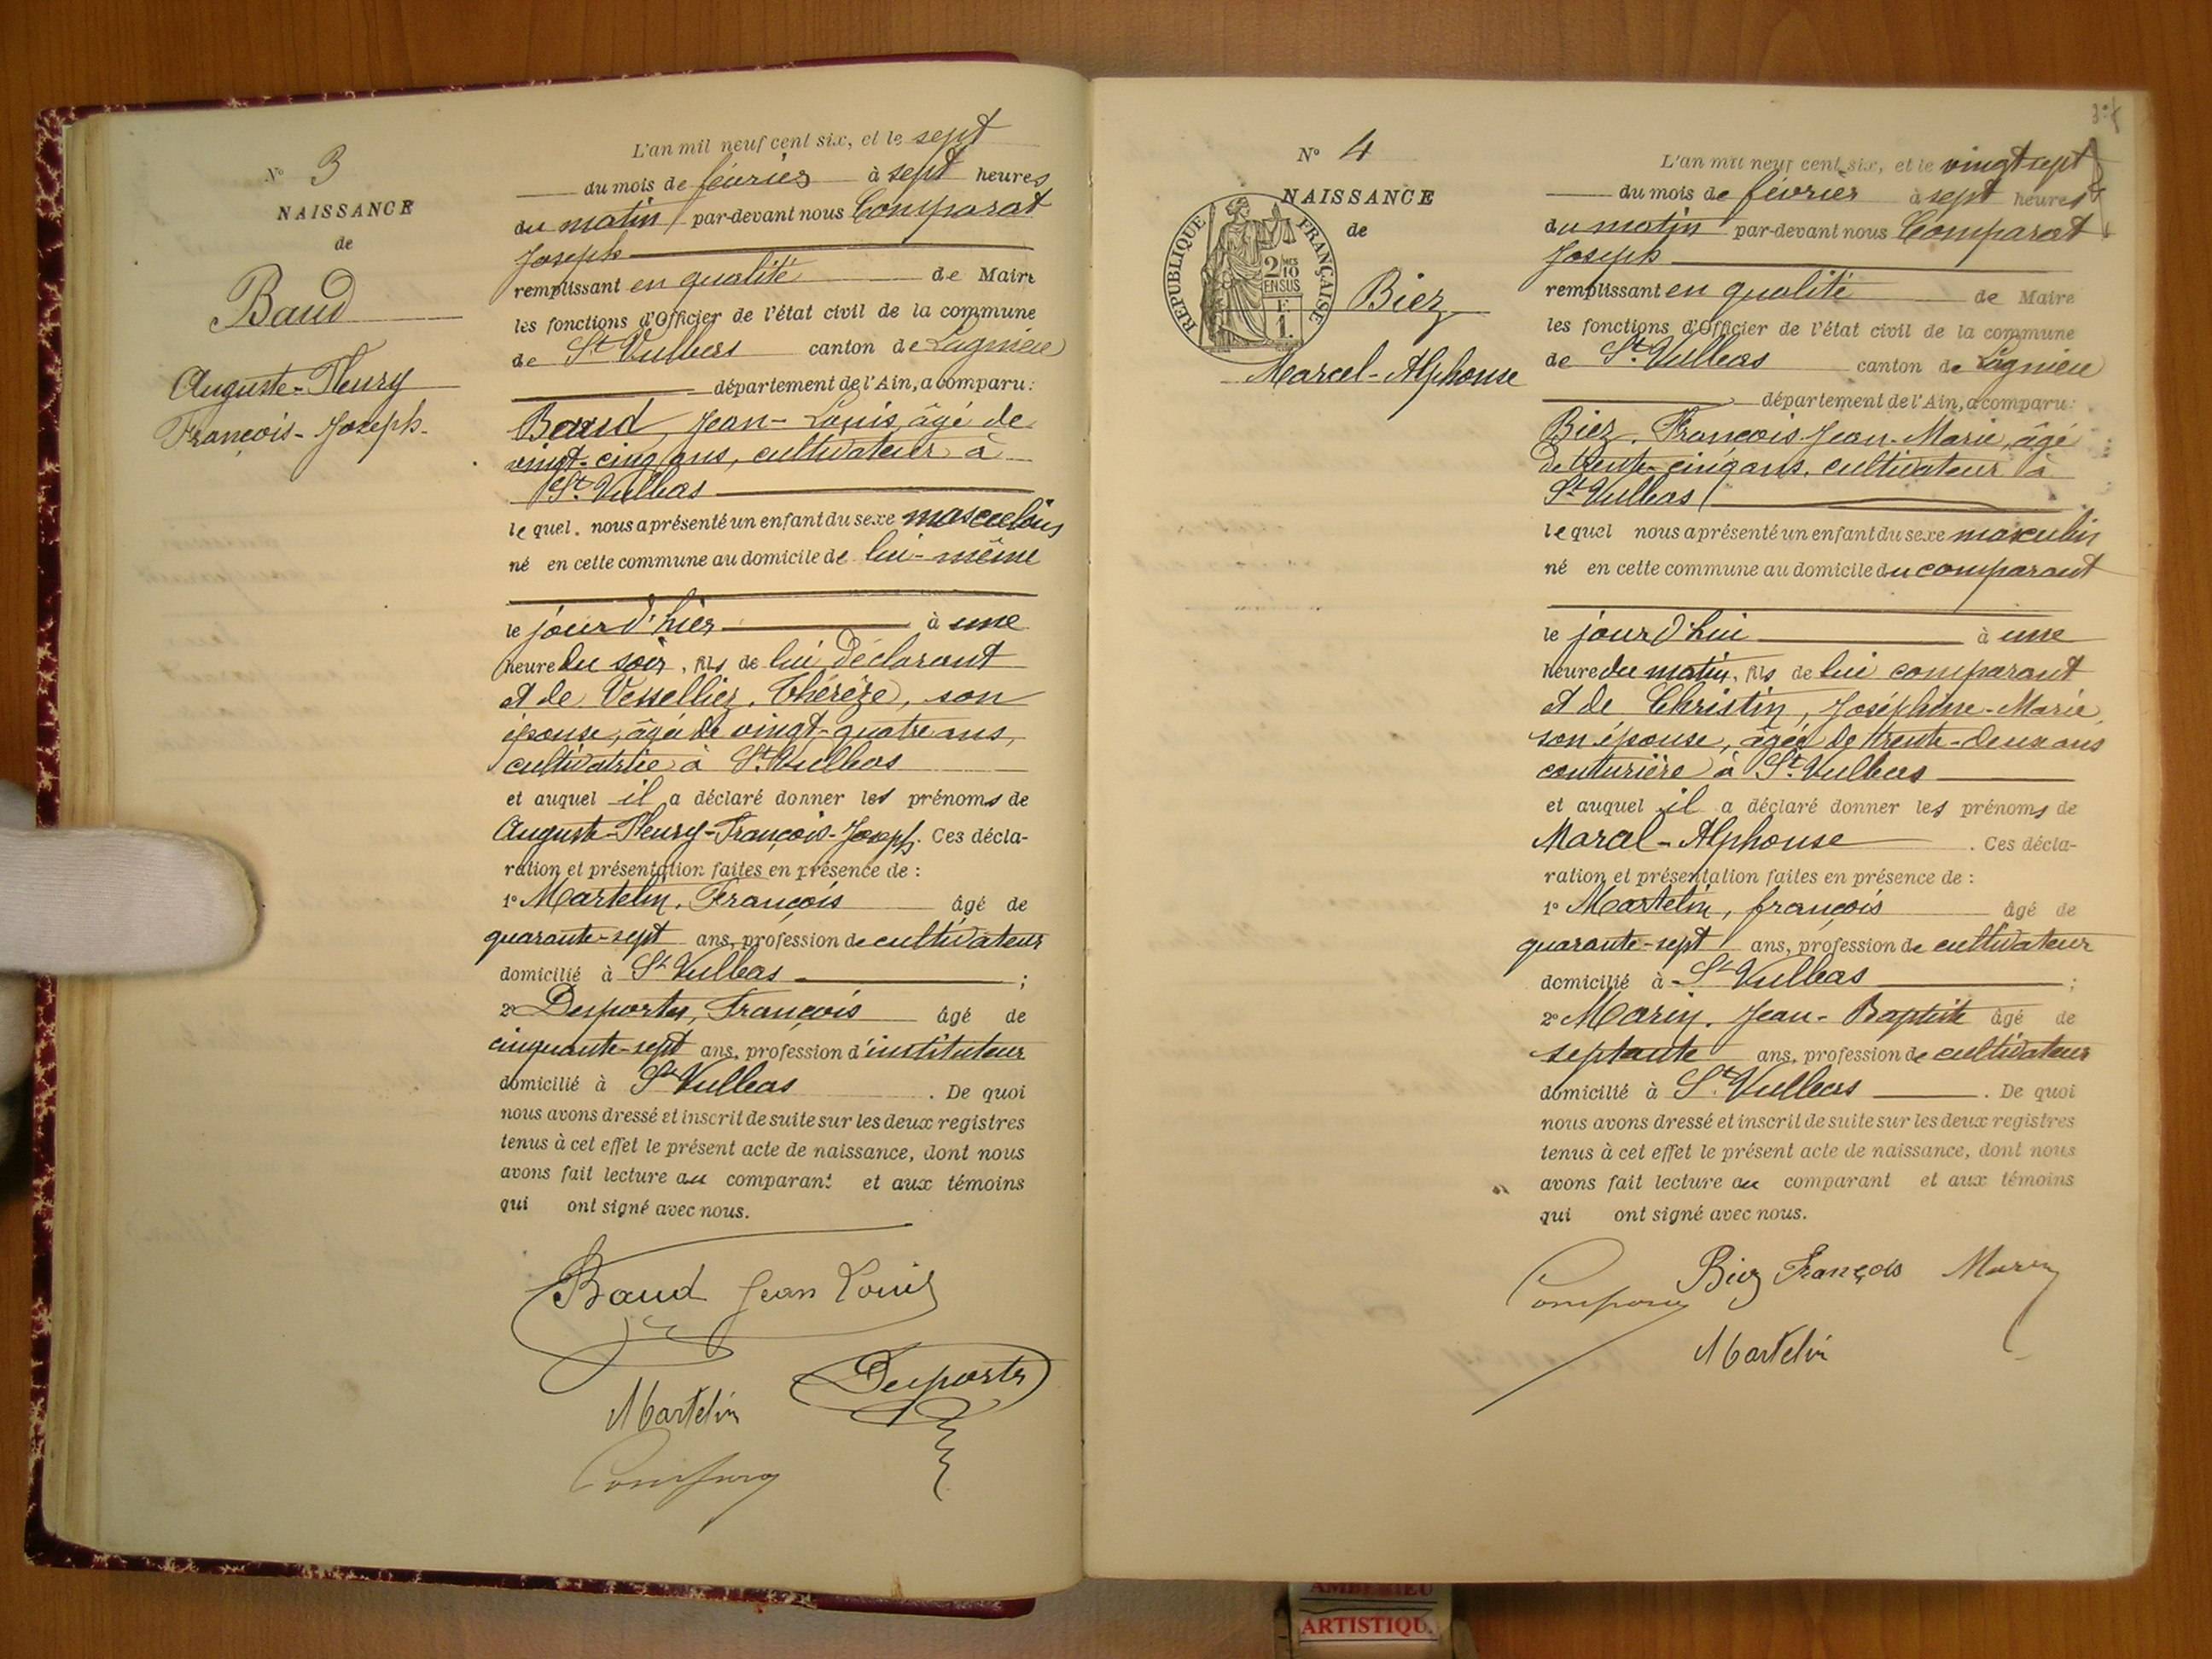 N° 3
NAISSANCE
de
Baud
Auguste-Fleury
François-Joseph.
L'an mil neuf cent six, et le sept
du mois de février à sept heures
du matin par-devant nous Comparat
Joseph
remplissant en qualité de Maire
les fonctions d'Officier de l'état civil de la commune
de St Vulbas canton de Lagnieu
département de l'Ain, a comparu:
Baud, Jean-Louis, âgé de
vingt-cinq ans, cultivateur à
St. Vulbas
lequel. nous a présenté un enfant du sexe masculin
né en cette commune au domicile de lui-même
le jour d'hier à une
heure du soir, fils de lui déclarant
et de Vessellier, Thérèze, son
épouse, âgée de vingt-quatre ans,
cultivatrice à St. Vulbas
et auquel il a déclaré donner les prénoms de
Auguste-Fleury-François-Joseph. Ces décla-
ration et présentation faites en présence de :
1° Martelin, François âgé de
quarante-sept ans, profession de cultivateur
domicilié à St Vulbas ;
2° Desportes, François âgé de
cinquante-sept ans, profession d'instituteur
domicilié à St Vulbas. De quoi
nous avons dressé et inscrit de suite sur les deux registres
tenus à cet effet le présent acte de naissance, dont nous
avons fait lecture au comparant et aux témoins
qui ont signé avec nous.
Baud Jean Louis
Martelin
N° 4
NAISSANCE
de
RÉPUBLIQUE FRANÇAISE
2/10 MES
EN SUS
F
1.
Biez
Marcel-Alphonse
L'an mil neuf cent six, et le vingt sept
du mois de février à sept heures
du matin par-devant nous Comparat
Joseph
remplissant en qualité de Maire
les fonctions d'Officier de l'état civil de la commune
de St. Vulbas canton de Lagnieu
département de l'Ain, a comparu:
Biez, François Jean-Marie, âgé
de trente-cinq ans, cultivateur à
St Vulbas
lequel nous a présenté un enfant du sexe masculin
né en cette commune au domicile du comparant
le jour d'hui à une
heure du matin, fils de lui comparant
et de Christin, Joséphine-Marie,
son épouse, âgée de trente-deux ans
couturière à St. Vulbas
et auquel il a déclaré donner les prénoms de
Marcel-Alphonse. Ces décla-
ration et présentation faites en présence de :
1° Martelin, françois âgé de
quarante-sept ans, profession de cultivateur
domicilié à St Vulbas ;
2° Marin, Jean-Baptiste âgé de
septante ans, profession de cultivateur
domicilié à St. Vulbas. De quoi
nous avons dressé et inscrit de suite sur les deux registres
tenus à cet effet le présent acte de naissance, dont nous
avons fait lecture au comparant et aux témoins
qui ont signé avec nous.
Biez François Marin
Martelin
AMBERIEU
ARTISTIQU